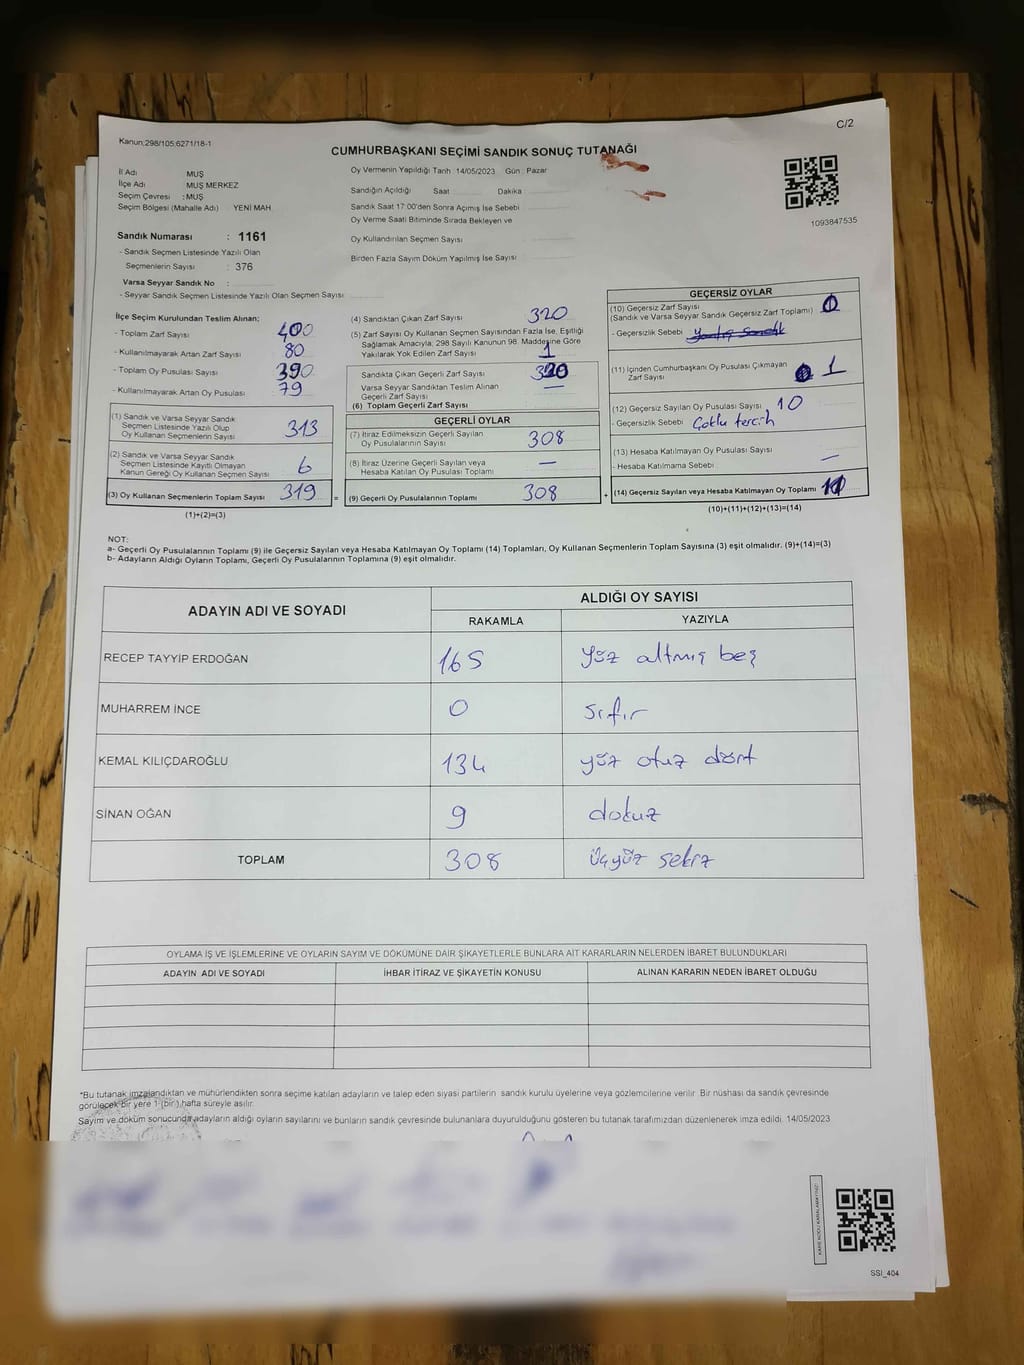 C/2
Kanun;298/105;6271/18-1
CUMHURBAŞKANI SEÇİMİ SANDIK SONUÇ TUTANAĞI
İl Adı MUŞ
İlçe Adı MUŞ MERKEZ
Seçim Çevresi : MUŞ
Seçim Bölgesi (Mahalle Adı) YENİ MAH
Oy Vermenin Yapıldığı Tarih 14/05/2023 Gün : Pazar
Sandığın Açıldığı Saat Dakika
Sandık Saat 17:00'den Sonra Açımış İse Sebebi
Oy Verme Saati Bitiminde Sırada Bekleyen ve
Oy Kullandırılan Seçmen Sayısı
Birden Fazla Sayım Döküm Yapılmış İse Sayısı
1093847535
Sandık Numarası : 1161
- Sandık Seçmen Listesinde Yazılı Olan
Seçmenlerin Sayısı : 376
Varsa Seyyar Sandık No :
- Seyyar Sandık Seçmen Listesinde Yazılı Olan Seçmen Sayısı:
İlçe Seçim Kurulundan Teslim Alınan;
- Toplam Zarf Sayısı 400
- Kullanılmayarak Artan Zarf Sayısı 80
- Toplam Oy Pusulası Sayısı 390
- Kullanılmayarak Artan Oy Pusulası 79
(1) Sandık ve Varsa Seyyar Sandık
Seçmen Listesinde Yazılı Olup
Oy Kullanan Seçmenlerin Sayısı 313
(2) Sandık ve Varsa Seyyar Sandık
Seçmen Listesinde Kayıtlı Olmayan
Kanun Gereği Oy Kullanan Seçmen Sayısı 6
(3) Oy Kullanan Seçmenlerin Toplam Sayısı 319 =
(1)+(2)=(3)
(4) Sandıktan Çıkan Zarf Sayısı 320
(5) Zarf Sayısı Oy Kullanan Seçmen Sayısından Fazla İse, Eşitliği
Sağlamak Amacıyla; 298 Sayılı Kanunun 98. Maddesine Göre
Yakılarak Yok Edilen Zarf Sayısı 1
Sandıkta Çıkan Geçerli Zarf Sayısı
Varsa Seyyar Sandıktan Teslim Alınan
Geçerli Zarf Sayısı —
(6) Toplam Geçerli Zarf Sayısı
GEÇERLİ OYLAR
(7) İtiraz Edilmeksizin Geçerli Sayılan
Oy Pusulalarının Sayısı 308
(8) İtiraz Üzerine Geçerli Sayılan veya
Hesaba Katılan Oy Pusulası Toplamı —
(9) Geçerli Oy Pusulalarının Toplamı 308 +
GEÇERSİZ OYLAR
(10) Geçersiz Zarf Sayısı
(Sandık ve Varsa Seyyar Sandık Geçersiz Zarf Toplamı) 0
- Geçersizlik Sebebi
(11) İçinden Cumhurbaşkanı Oy Pusulası Çıkmayan
Zarf Sayısı 1
(12) Geçersiz Sayılan Oy Pusulası Sayısı 10
- Geçersizlik Sebebi Çoklu tercih
(13) Hesaba Katılmayan Oy Pusulası Sayısı —
- Hesaba Katılmama Sebebi
(14) Geçersiz Sayılan veya Hesaba Katılmayan Oy Toplamı 11
(10)+(11)+(12)+(13)=(14)
NOT:
a- Geçerli Oy Pusulalarının Toplamı (9) ile Geçersiz Sayılan veya Hesaba Katılmayan Oy Toplamı (14) Toplamları, Oy Kullanan Seçmenlerin Toplam Sayısına (3) eşit olmalıdır. (9)+(14)=(3)
b- Adayların Aldığı Oyların Toplamı, Geçerli Oy Pusulalarının Toplamına (9) eşit olmalıdır.
ADAYIN ADI VE SOYADI ALDIĞI OY SAYISI
RAKAMLA YAZIYLA
RECEP TAYYİP ERDOĞAN 165 yüz altmış beş
MUHARREM İNCE 0 sıfır
KEMAL KILIÇDAROĞLU 134 yüz otuz dört
SİNAN OĞAN 9 dokuz
TOPLAM 308 üçyüz sekiz
OYLAMA İŞ VE İŞLEMLERİNE VE OYLARIN SAYIM VE DÖKÜMÜNE DAİR ŞİKAYETLERLE BUNLARA AİT KARARLARIN NELERDEN İBARET BULUNDUKLARI
ADAYIN ADI VE SOYADI İHBAR İTİRAZ VE ŞİKAYETİN KONUSU ALINAN KARARIN NEDEN İBARET OLDUĞU
*Bu tutanak imzalandıktan ve mühürlendikten sonra seçime katılan adayların ve talep eden siyasi partilerin sandık kurulu üyelerine veya gözlemcilerine verilir. Bir nüshası da sandık çevresinde
görülecek bir yere 1 (bir) hafta süreyle asılır.
Sayım ve döküm sonucunda adayların aldığı oyların sayılarını ve bunların sandık çevresinde bulunanlara duyurulduğunu gösteren bu tutanak tarafımızdan düzenlenerek imza edildi. 14/05/2023
SSİ_404